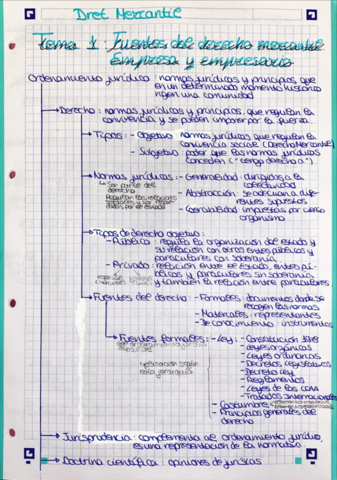 Dret Mercantil
Tema 1: Fuentes del derecho mercantil.
Empresa y empresario
Ordenamiento jurídico: normas jurídicas y principios, que
en un determinado momento histórico
rigen una comunidad
Derecho: normas jurídicas y principios, que regulan la
convivencia y se pueden imponer por la fuerza.
Tipos: - Objetivo: normas jurídicas que regulan la
convivencia social (Derecho Mercantil)
- Subjetivo: poder que las normas jurídicas
conceden ("tengo derecho a")
Normas jurídicas: - Generalidad: dirigidas a la
colectividad
- Abstracción: se adecuan a dife-
rentes supuestos
impuestas por cierto
organismo
Son parte del
derecho
Regulan las relaciones
Tipos de derecho objetivo:
- Público: regula la organización del estado y
su relación con otros entes públicos y
particulares con soberanía
- Privado: relación entre el estado, entes pú-
blicos y particulares sin soberanía,
y también la relación entre particulares
Fuentes del derecho: - Formales: documentos donde se
recogen las normas
- Materiales: representantes
- De conocimiento: instrumentos
Fuentes formales: - Ley: - Constitución 1978
- Leyes orgánicas
- Leyes ordinarias
- Decretos legislativos
- Decreto Ley
- Reglamentos
- Leyes de las CCAA
- Tratados internacionales
- Costumbre:
- Principios generales del
derecho
Jurisprudencia: complementa al ordenamiento jurídico,
es una representación de la normativa.
Doctrina científica: opiniones de juristas